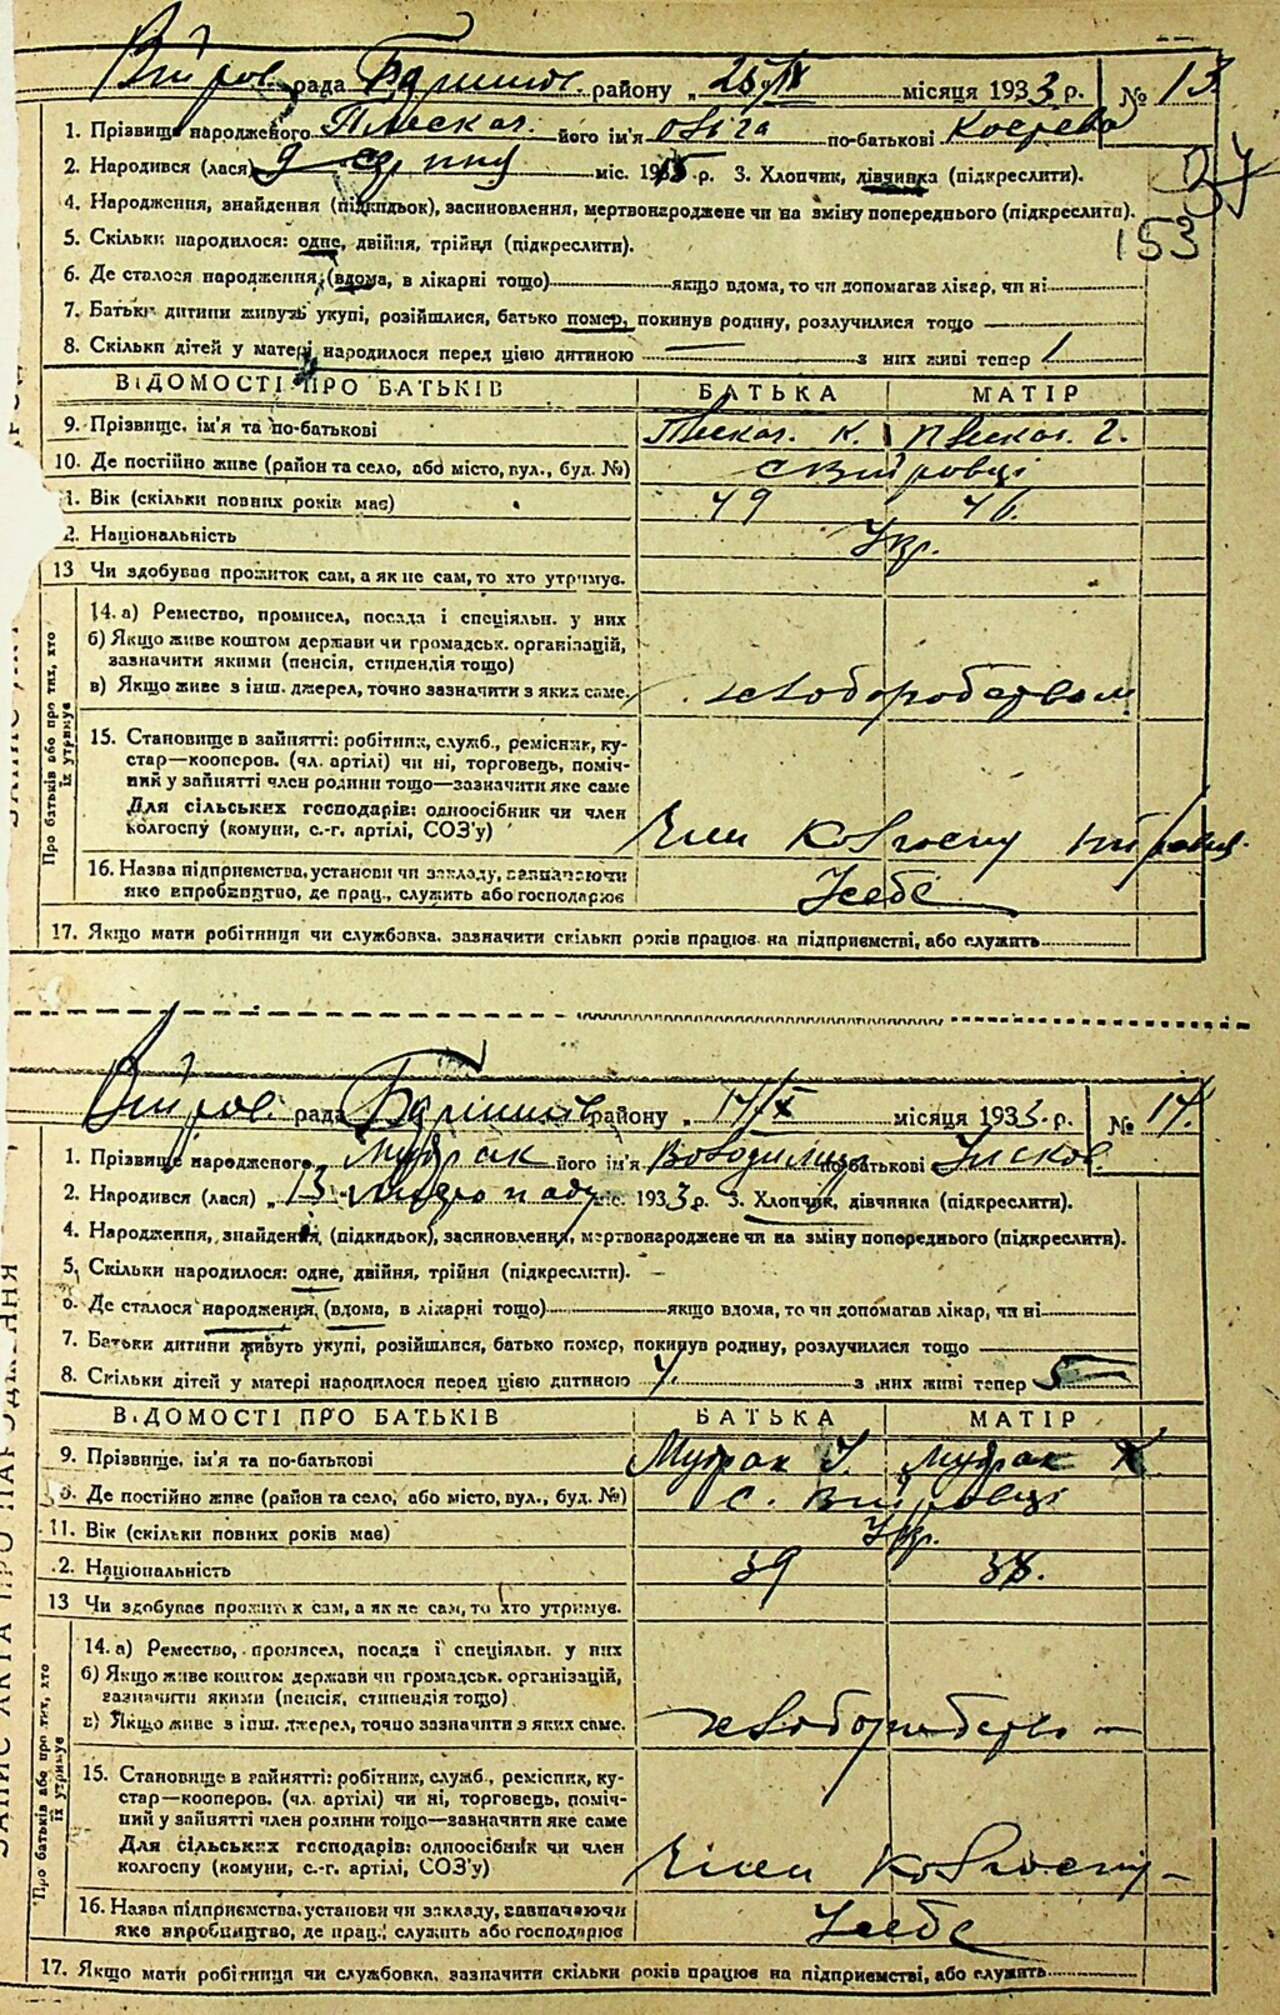 рада району 25/ІХ місяця 1933 р. № 13
1. Прізвище народженого його ім'я по-батькові
37
2. Народився (лася) 9 міс. 19 5 р. 3. Хлопчик, дівчинка (підкреслити).
4. Народження, знайдення (підкидьок), засиновлення, мертвонароджене чи на зміну попереднього (підкреслити).
153
5. Скільки народилося: одне, двійня, трійня (підкреслити).
6. Де сталося народження, (вдома, в лікарні тощо) якщо вдома, то чи допомагав лікар, чи ні
7. Батьки дитини живуть укупі, розійшлися, батько помер, покинув родину, розлучилися тощо
8. Скільки дітей у матері народилося перед цією дитиною — з них живі тепер 1
ВІДОМОСТІ ПРО БАТЬКІВ БАТЬКА МАТІР
9. Прізвище, ім'я та по-батькові
10. Де постійно живе (район та село, або місто, вул., буд. №)
1. Вік (скільки повних років має) 49 46.
2. Національність Укр.
13 Чи здобував прожиток сам, а як не сам, то хто утримує.
Про батьків або про тих, хто їх утримує
14. а) Ремество, промисел, посада і спеціяльн. у них
б) Якщо живе коштом держави чи громадськ. організацій,
зазначити якими (пенсія, стипендія тощо)
в) Якщо живе з інш. джерел, точно зазначити з яких саме. хліборобством
15. Становище в зайнятті: робітник, служб., ремісник, ку-
стар—кооперов. (чл. артілі) чи ні, торговець, поміч-
ний у зайнятті член родини тощо—зазначити яке саме
Для сільських господарів: одноосібник чи член
колгоспу (комуни, с.-г. артілі, СОЗ'у) Член колгоспу
16. Назва підприємства, установи чи закладу, зазначаючи
яке виробництво, де прац., служить або господарює У себе
17. Якщо мати робітниця чи службовка, зазначити скільки років працює на підприємстві, або служить
рада району 17/X місяця 1933 р. № 14.
1. Прізвище народженого Мудрак його ім'я Володимир по-батькові
2. Народився (лася) „13 листопаду міс. 1933 р. 3. Хлопчик, дівчинка (підкреслити).
4. Народження, знайдення, (підкидьок), засиновлення, мертвонароджене чи на зміну попереднього (підкреслити).
5. Скільки народилося: одне, двійня, трійня (підкреслити).
6. Де сталося народження, (вдома, в лікарні тощо) якщо вдома, то чи допомагав лікар, чи ні
7. Батьки дитини живуть укупі, розійшлися, батько помер, покинув родину, розлучилися тощо
8. Скільки дітей у матері народилося перед цією дитиною 4. з них живі тепер 5
ВІДОМОСТІ ПРО БАТЬКІВ БАТЬКА МАТІР
9. Прізвище, ім'я та по-батькові Мудрак У. Мудрак Х
0. Де постійно живе (район та село, або місто, вул., буд. №) с.
11. Вік (скільки повних років має) Укр.
2. Національність 39 38.
13 Чи здобував прожиток сам, а як не сам, то хто утримує.
Про батьків або про тих, хто їх утримує
14. а) Ремество, промисел, посада і спеціяльн. у них
б) Якщо живе коштом держави чи громадськ. організацій,
зазначити якими (пенсія, стипендія тощо)
в) Якщо живе з інш. джерел, точно зазначити з яких саме. хліборобство —
15. Становище в зайнятті: робітник, служб., ремісник, ку-
стар—кооперов. (чл. артілі) чи ні, торговець, поміч-
ний у зайнятті член родини тощо—зазначити яке саме
Для сільських господарів: одноосібник чи член
колгоспу (комуни, с.-г. артілі, СОЗ'у) Член колгоспу —
16. Назва підприємства, установи чи закладу, зазначаючи
яке виробництво, де прац., служить або господарює У себе
17. Якщо мати робітниця чи службовка, зазначити скільки років працює на підприємстві, або служить
ЗАПИС АКТА ПРО НАРОДЖЕННЯ